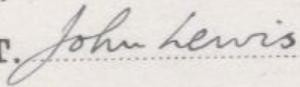 T. John Lewis